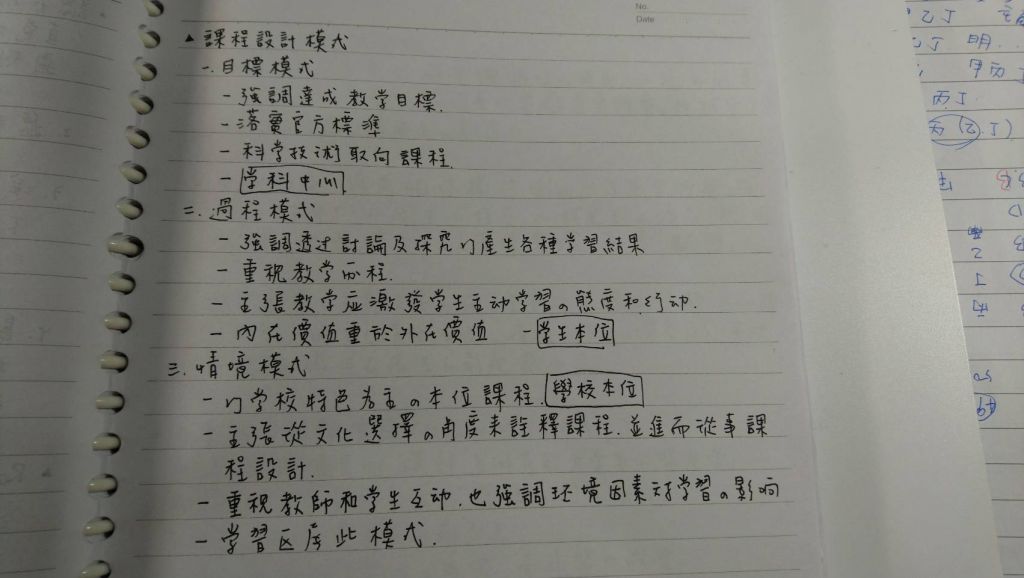 No.
Date
▲課程設計模式
一.目標模式
-強調達成教学目標.
-落實官方標準
-科学技術取向課程.
-学科中心
二.過程模式
-強調透过討論及探究以產生各種学習結果
-重視教学历程.
-主張教学应激發学生主动学習の態度和行动.
-內在價值重於外在價值 -学生本位
三.情境模式
-以学校特色為主の本位課程.學校本位
-主張從文化選擇の角度來詮釋課程.並進而從事課
程設計.
-重視教師和学生互动.也強調环境因素对学習の影响
-学習区属此模式.
乙丁
丁明..
丙丁
丙(乙.丁)